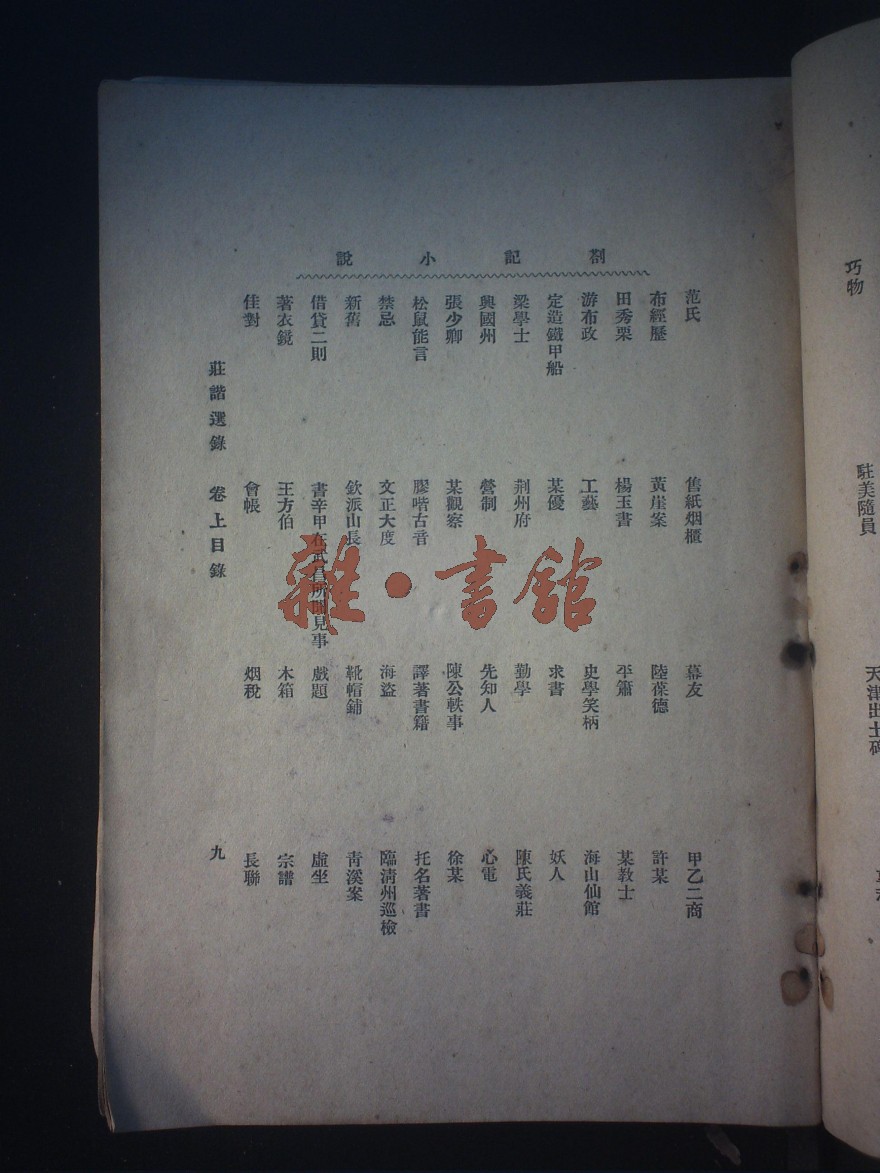 劄記小說
范氏 舊紙烟櫃 幕友 甲乙二商
布經歷 黃崖案 陸葆德 許某
田秀栗 楊玉書 平籲 某教士
游布政 工藝 史學笑柄 海山仙館
定造鐵甲船 某優 求書 妖人
梁學士 荆州府 勤學 陳氏義莊
興國州 營制 先知人 心電
張少卿 某觀察 陳公軼事 徐某
松鼠能言 膠喈古音 譯著書籍 托名著書
禁忌 文正大度 海盜 臨清州巡檢
新舊 欽派山長 靴帽鋪 青溪案
借貸二則 書辛甲在武昌所聞見事 戲題 虛坐
著衣鏡 王方伯 木箱 宗譜
佳對 會帳 烟稅 長聯
莊諧選錄 卷上目錄 九
巧物 駐美隨員 天津出土碑
雜·書館